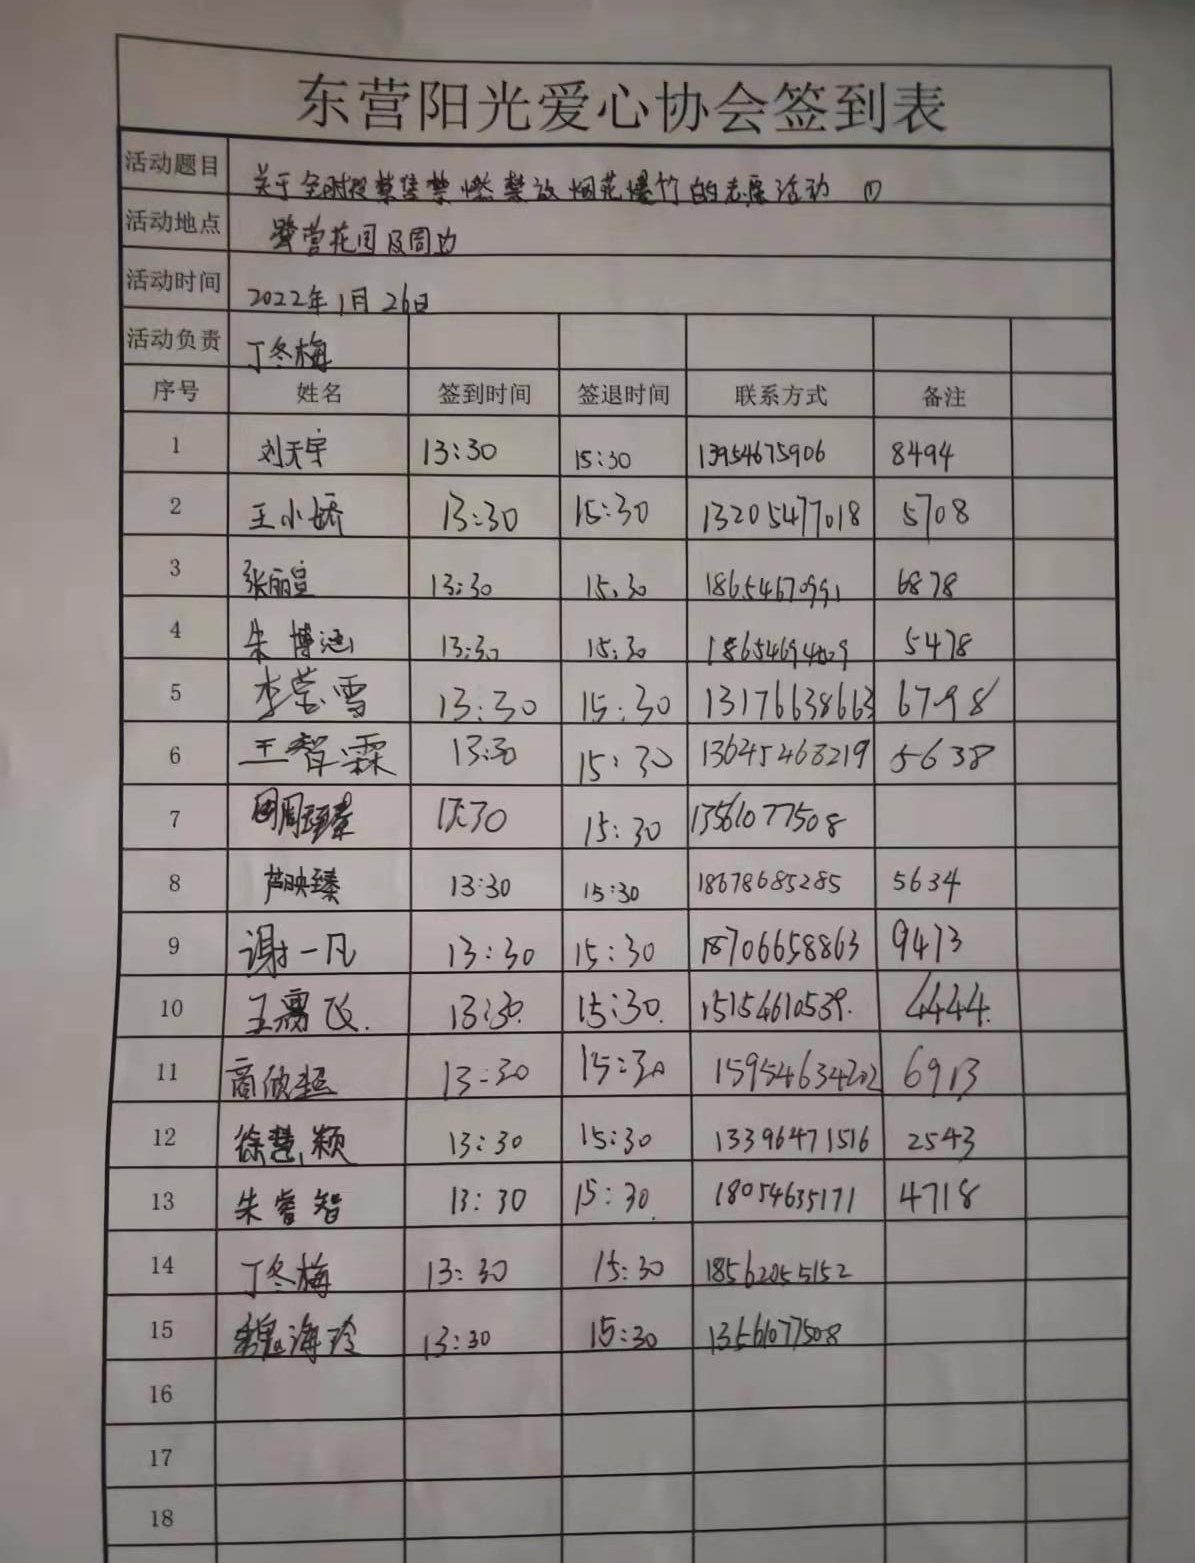 东营阳光爱心协会签到表
活动题目 关于全时段禁售禁燃禁放烟花爆竹的志愿活动 ①
活动地点 营花园及周边
活动时间 2022年1月26日
活动负责 丁冬梅
序号 姓名 签到时间 签退时间 联系方式 备注
1 刘天宇 13:30 15:30 13954675906 8494
2 王小娇 13:30 15:30 13205477018 5708
3 张丽宣 13:30 15:30 18654670991 6878
4 朱博涵 13:30 15:30 5478
5 李莹雪 13:30 15:30 13176638663 6798
6 王智霖 13:30 15:30 13645468219 5638
7 13:30 15:30 13561077508
8 芦映臻 13:30 15:30 18678685285 5634
9 谢一凡 13:30 15:30 18706658863 9473
10 王飞 13:30 15:30 15154610539 4444
11 商欣 13:30 15:30 15954634202 6913
12 徐慧颖 13:30 15:30 13396471516 2543
13 朱睿智 13:30 15:30 18054635171 4718
14 丁冬梅 13:30 15:30 18562055152
15 魏海玲 13:30 15:30 13561077508
16
17
18